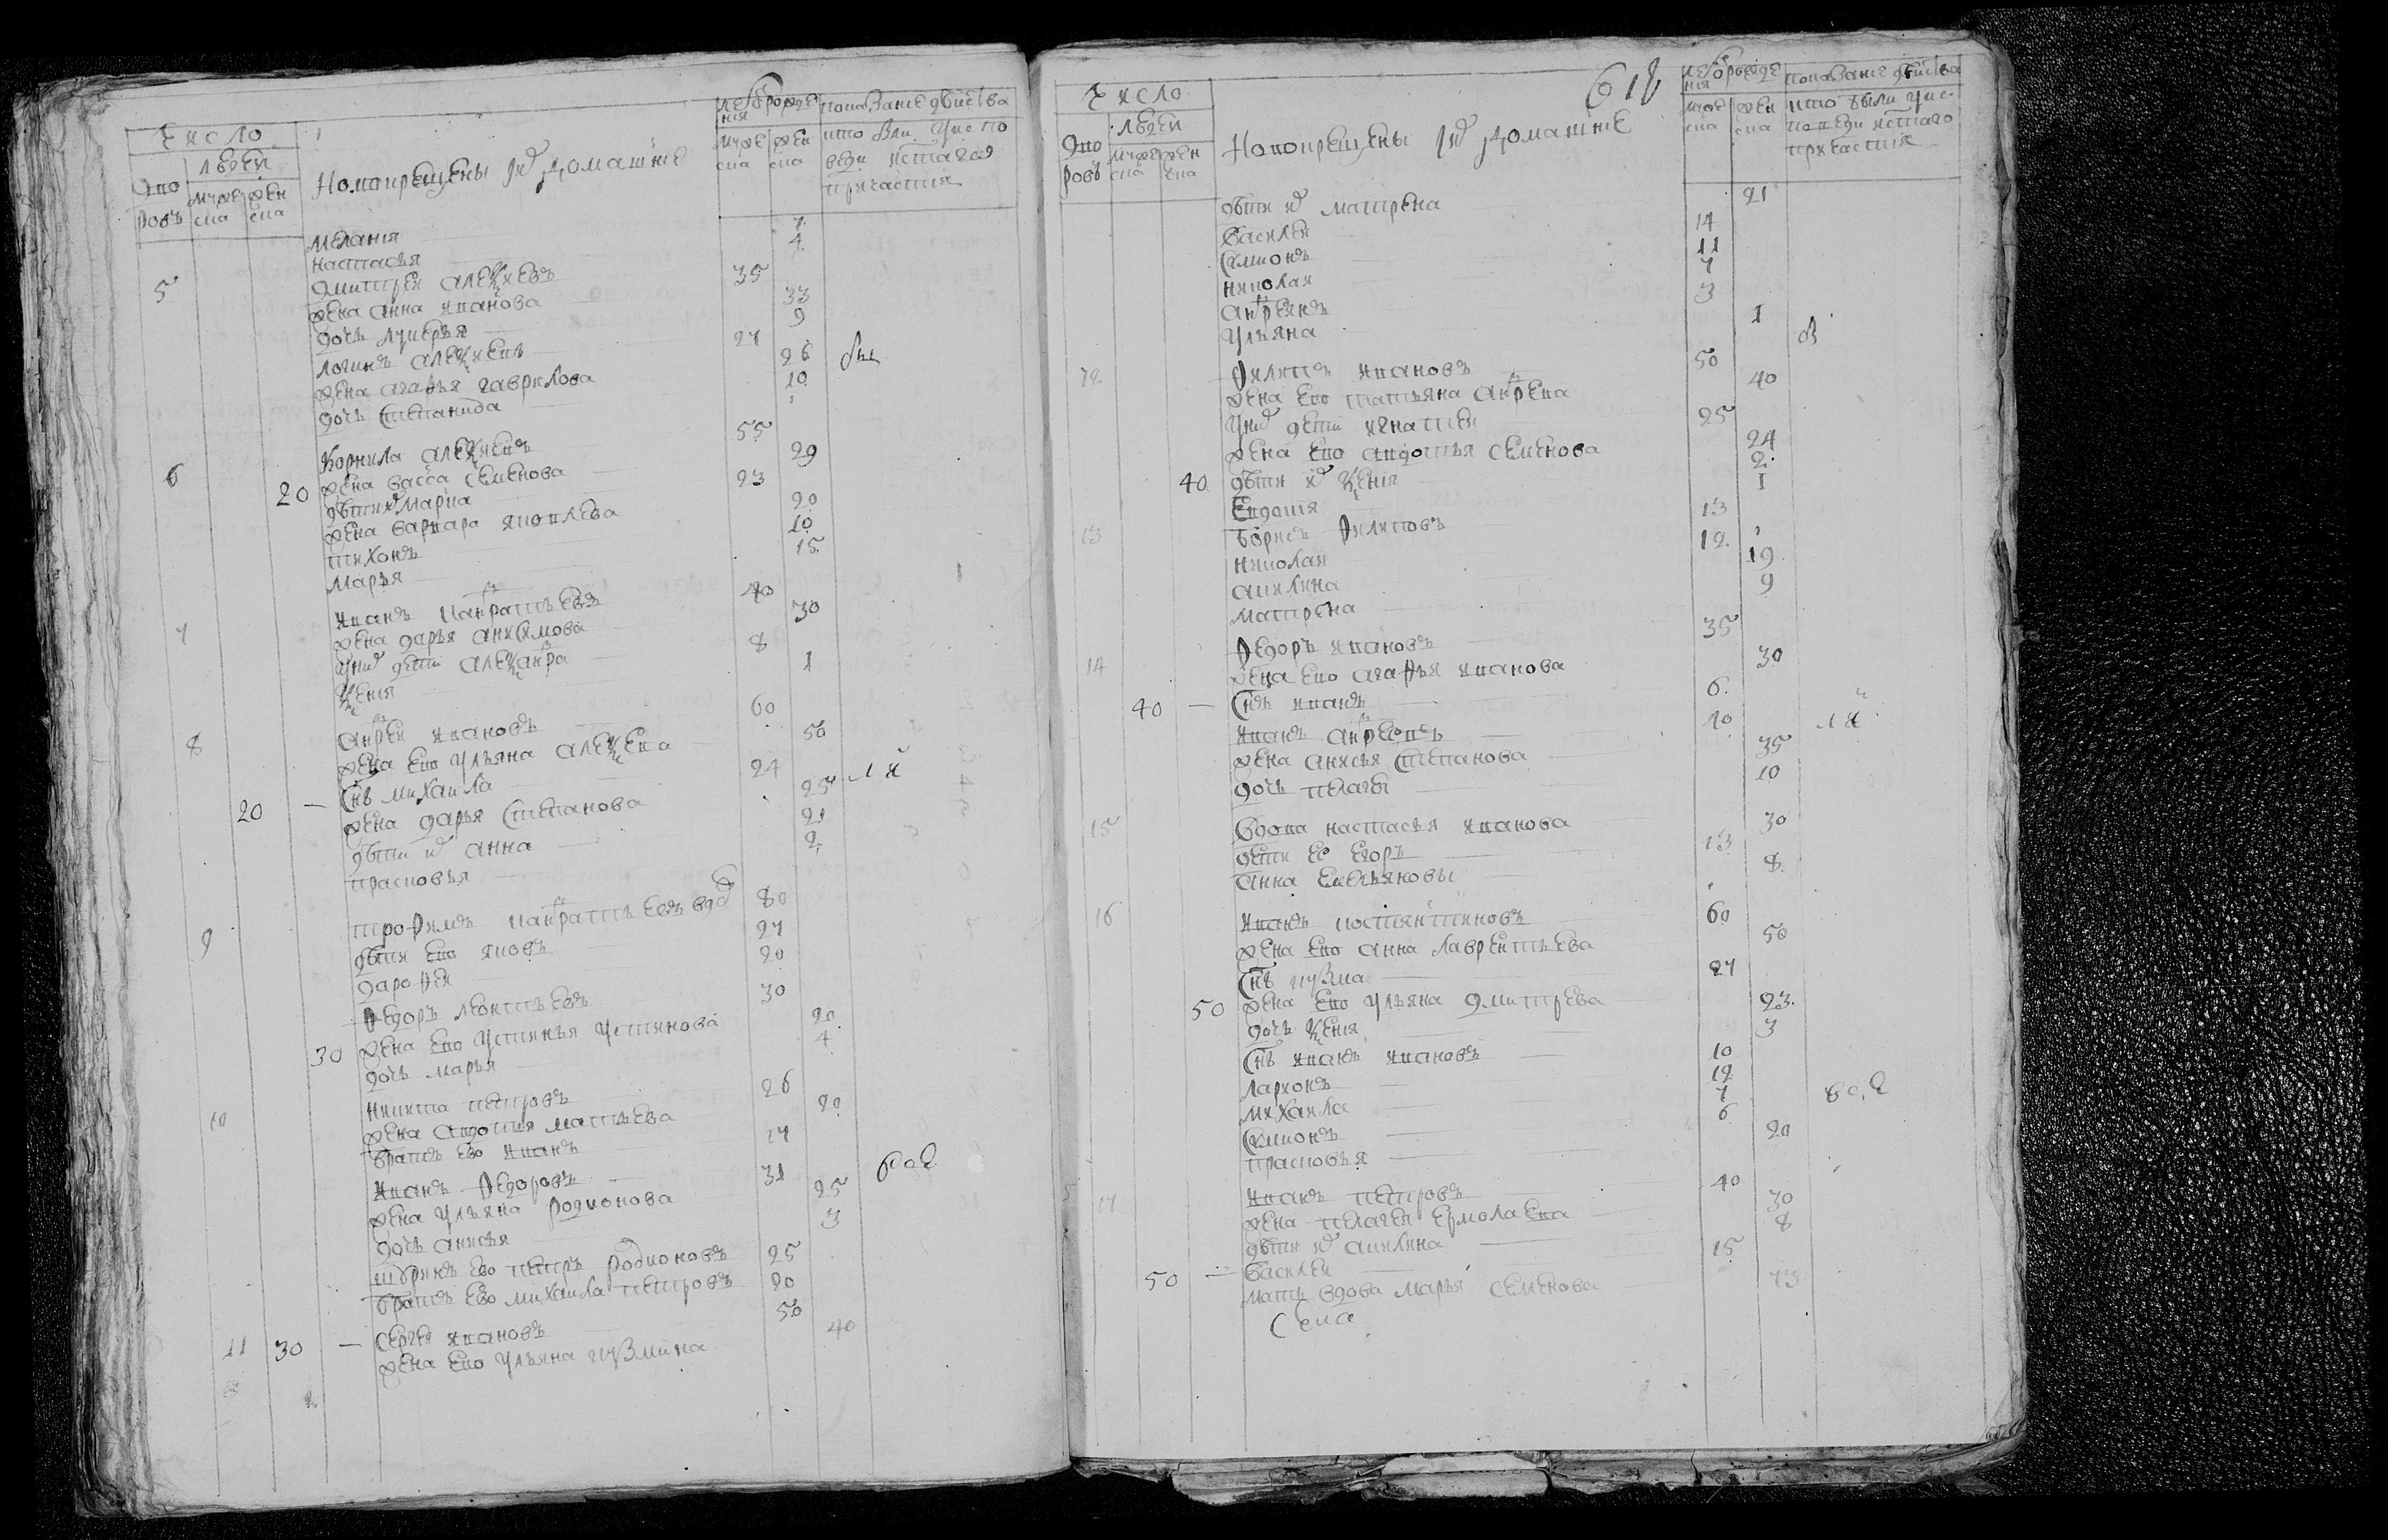 число
дво
ровъ
людей
муже
ска
жен
ска
Новокрещены их домашние
ле от рожде
ния
муже
ска
жен
ска
показание действа
кто был у испо
веди и святаго
причастия
мелания 7
настасья 4
5 дмитреи алексеевъ 35
жена анна иванова 33
дочь лукерья 9
логинъ алексеевъ 27
жена агафья гаврилова 26
дочь степанида 10
6 корнила алексеевъ 55
20 жена васса семенова 29
дети их марка 23
жена варвара яковлева 20
тихонъ 10
марья 15
7 иванъ панкратьевъ 40
жена дарья анисимова 30
у них дети александра 8
ксения 1
8 андреи ивановъ 60
жена ево ульяна алексеева 50
20 — снъ михаила 24
жена дарья степанова 25
дети их анна 21
прасковья 2
9 трофимъ панкратьевъ вдов 80
дети ево яковъ 27
дарофей 20
федоръ леонтьевъ 30
30 жена ево устинья устинова 20
дочь марья 4
10 никита петровъ 26
жена авдотия матвева 20
братъ ево иванъ 17
иванъ федоровъ 31
жена ульяна родионова 25
дочь анисья 3
шуринъ ево петръ родионовъ 25
братъ ево михаила петровъ 20
11 30 — сергеи ивановъ 50
жена ево ульяна кузмина 40
618
число
дво
ровъ
людей
муже
ска
жен
ска
Новокрещены их домашние
ле от рожде
ния
муже
ска
жен
ска
показание действа
кто были у ис
поведи и стаго
причастия
дети их матрена 21
василеи 14
симионъ 11
николаи 7
андреянъ 3
ульяна 1
12 филипъ ивановъ 50
жена ево татьяна андреева 40
у них дети игнатеи 25
жена ево авдотья семенова 24
40 дети их ксения 2
евдотия 1
13 борисъ филиповъ 13
николаи 12
акилина 19
матрена 9
14 федоръ ивановъ 35
жена ево агафья иванова 30
40 — снъ иванъ 6
иванъ андреевъ 40
жена анисья степанова 35
дочь пелагея 10
15 вдова настасья иванова 30
дети ее егоръ 13
анна емельяновы 8
16 иванъ костянтиновъ 60
жена ево анна лаврентьева 50
снъ кузма 27
50 жена ево ульяна дмитрева 23
дочь ксения 3
снъ иванъ ивановъ 10
ларионъ 12
михаила 7
симионъ 6
прасковья 20
17 иванъ петровъ 40
жена пелагея ермолаева 30
дети их акилина 8
50 — василеи 15
мать вдова марья семенова 73